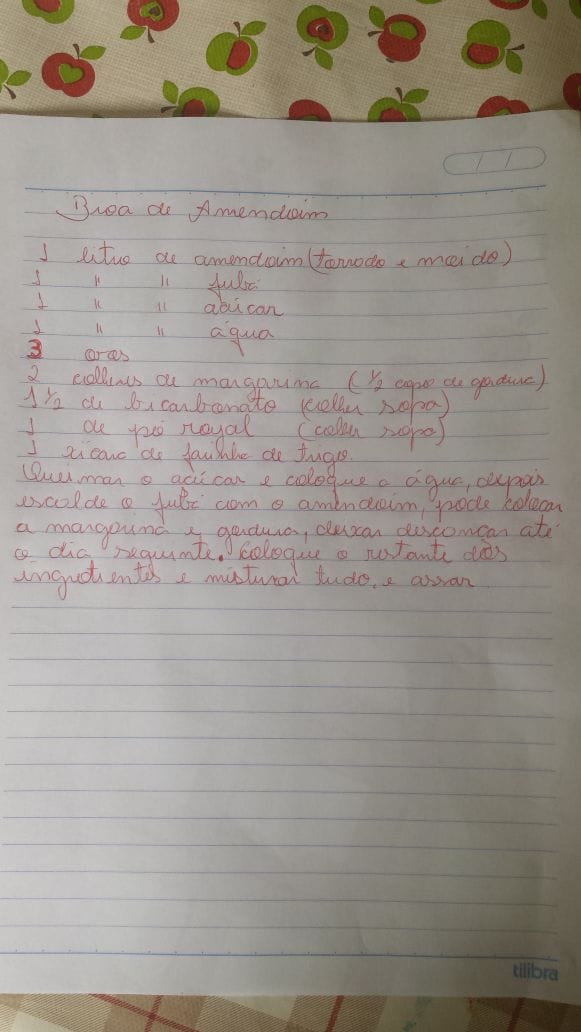 Broa de Amendoim
1 litro de amendoim (torrado e moido)
1 " " fubá
1 " " açúcar
1 " " água
3 ovos
2 colheres de margarina (1/2 copo de gordura)
1 1/2 de bicarbonato (colher sopa)
1 de pó royal (colher sopa)
1 xicara de farinha de trigo.
Queimar o açúcar e coloque a água, depois
escalde o fubá com o amendoim, pode colocar
a margarina e gordura, deixar descançar até
o dia seguinte. Coloque o restante dos
ingredientes e misturar tudo, e assar
tilibra